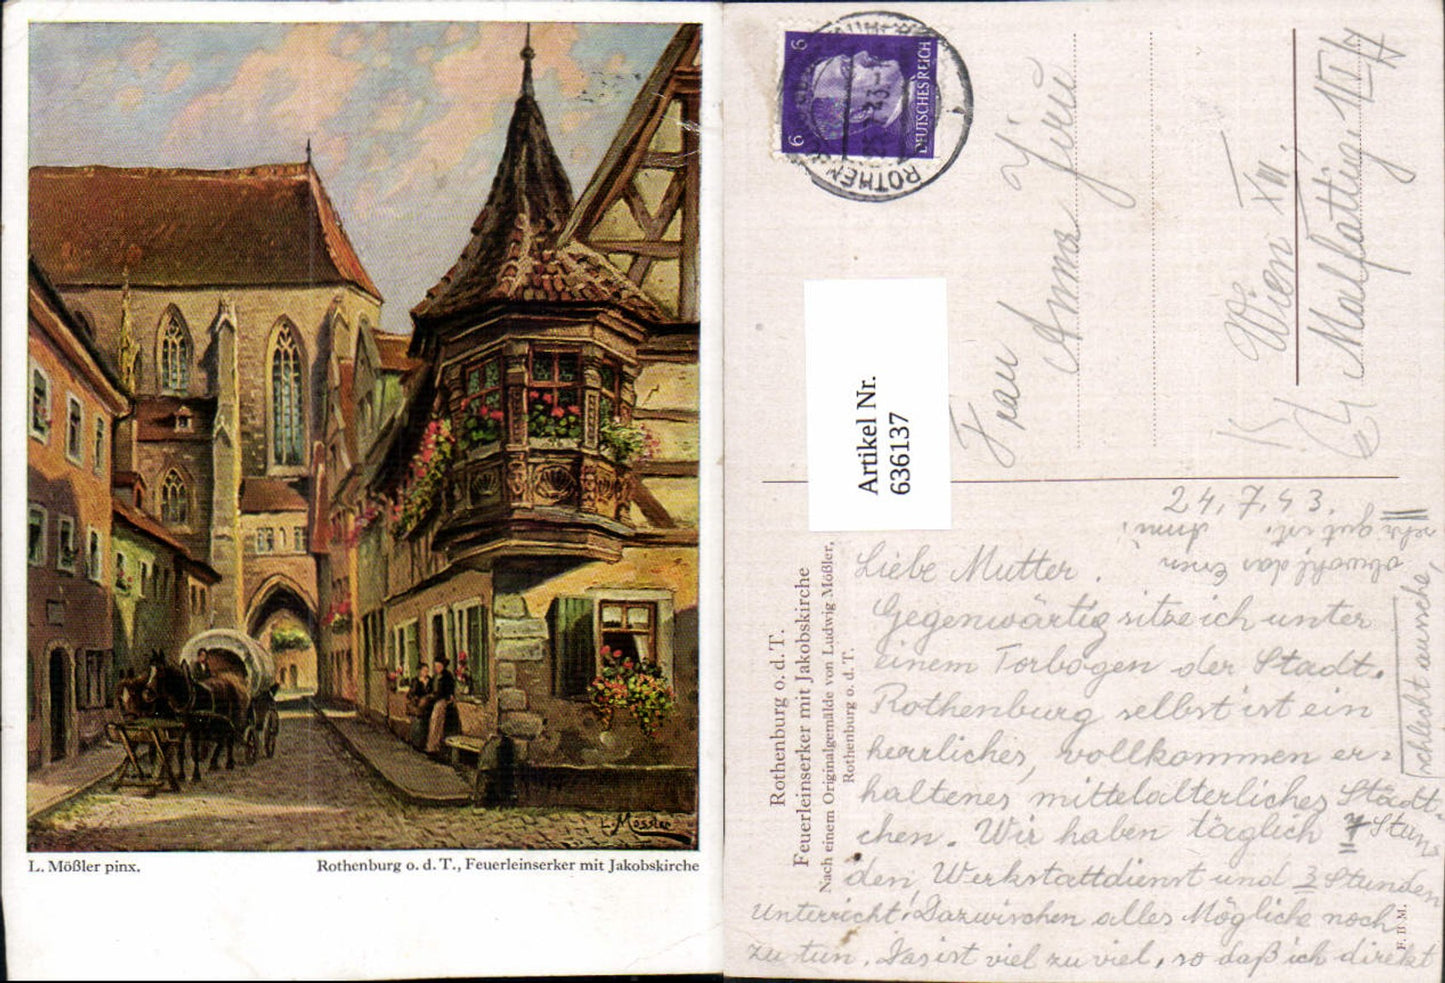 L. Mössler
L. Mößler pinx.
Rothenburg o. d. T., Feuerleinserker mit Jakobskirche
6
6
DEUTSCHES REICH
ROTHEN
Artikel Nr.
6361137
Frau
Anna
Wien XIII.
Malfattig.
Rothenburg o. d. T.
Feuerleinserker mit Jakobskirche
Nach einem Originalgemälde von Ludwig Mößler,
Rothenburg o. d. T.
F. H. M.
24.7.43.
Liebe Mutter.
Gegenwärtig sitze ich unter
einem Torbogen der Stadt.
Rothenburg selbst ist ein
herrliches, vollkommen er=
haltenes mittelalterliches Städt
chen. Wir haben täglich 7 Stun
den Werkstattdienst und 3 Stunden
Unterricht! Dazwischen alles Mögliche noch
zu tun. Das ist viel zu viel, so daß ich direkt
schlecht aussche,
obwohl das Essen
sehr gut ist.